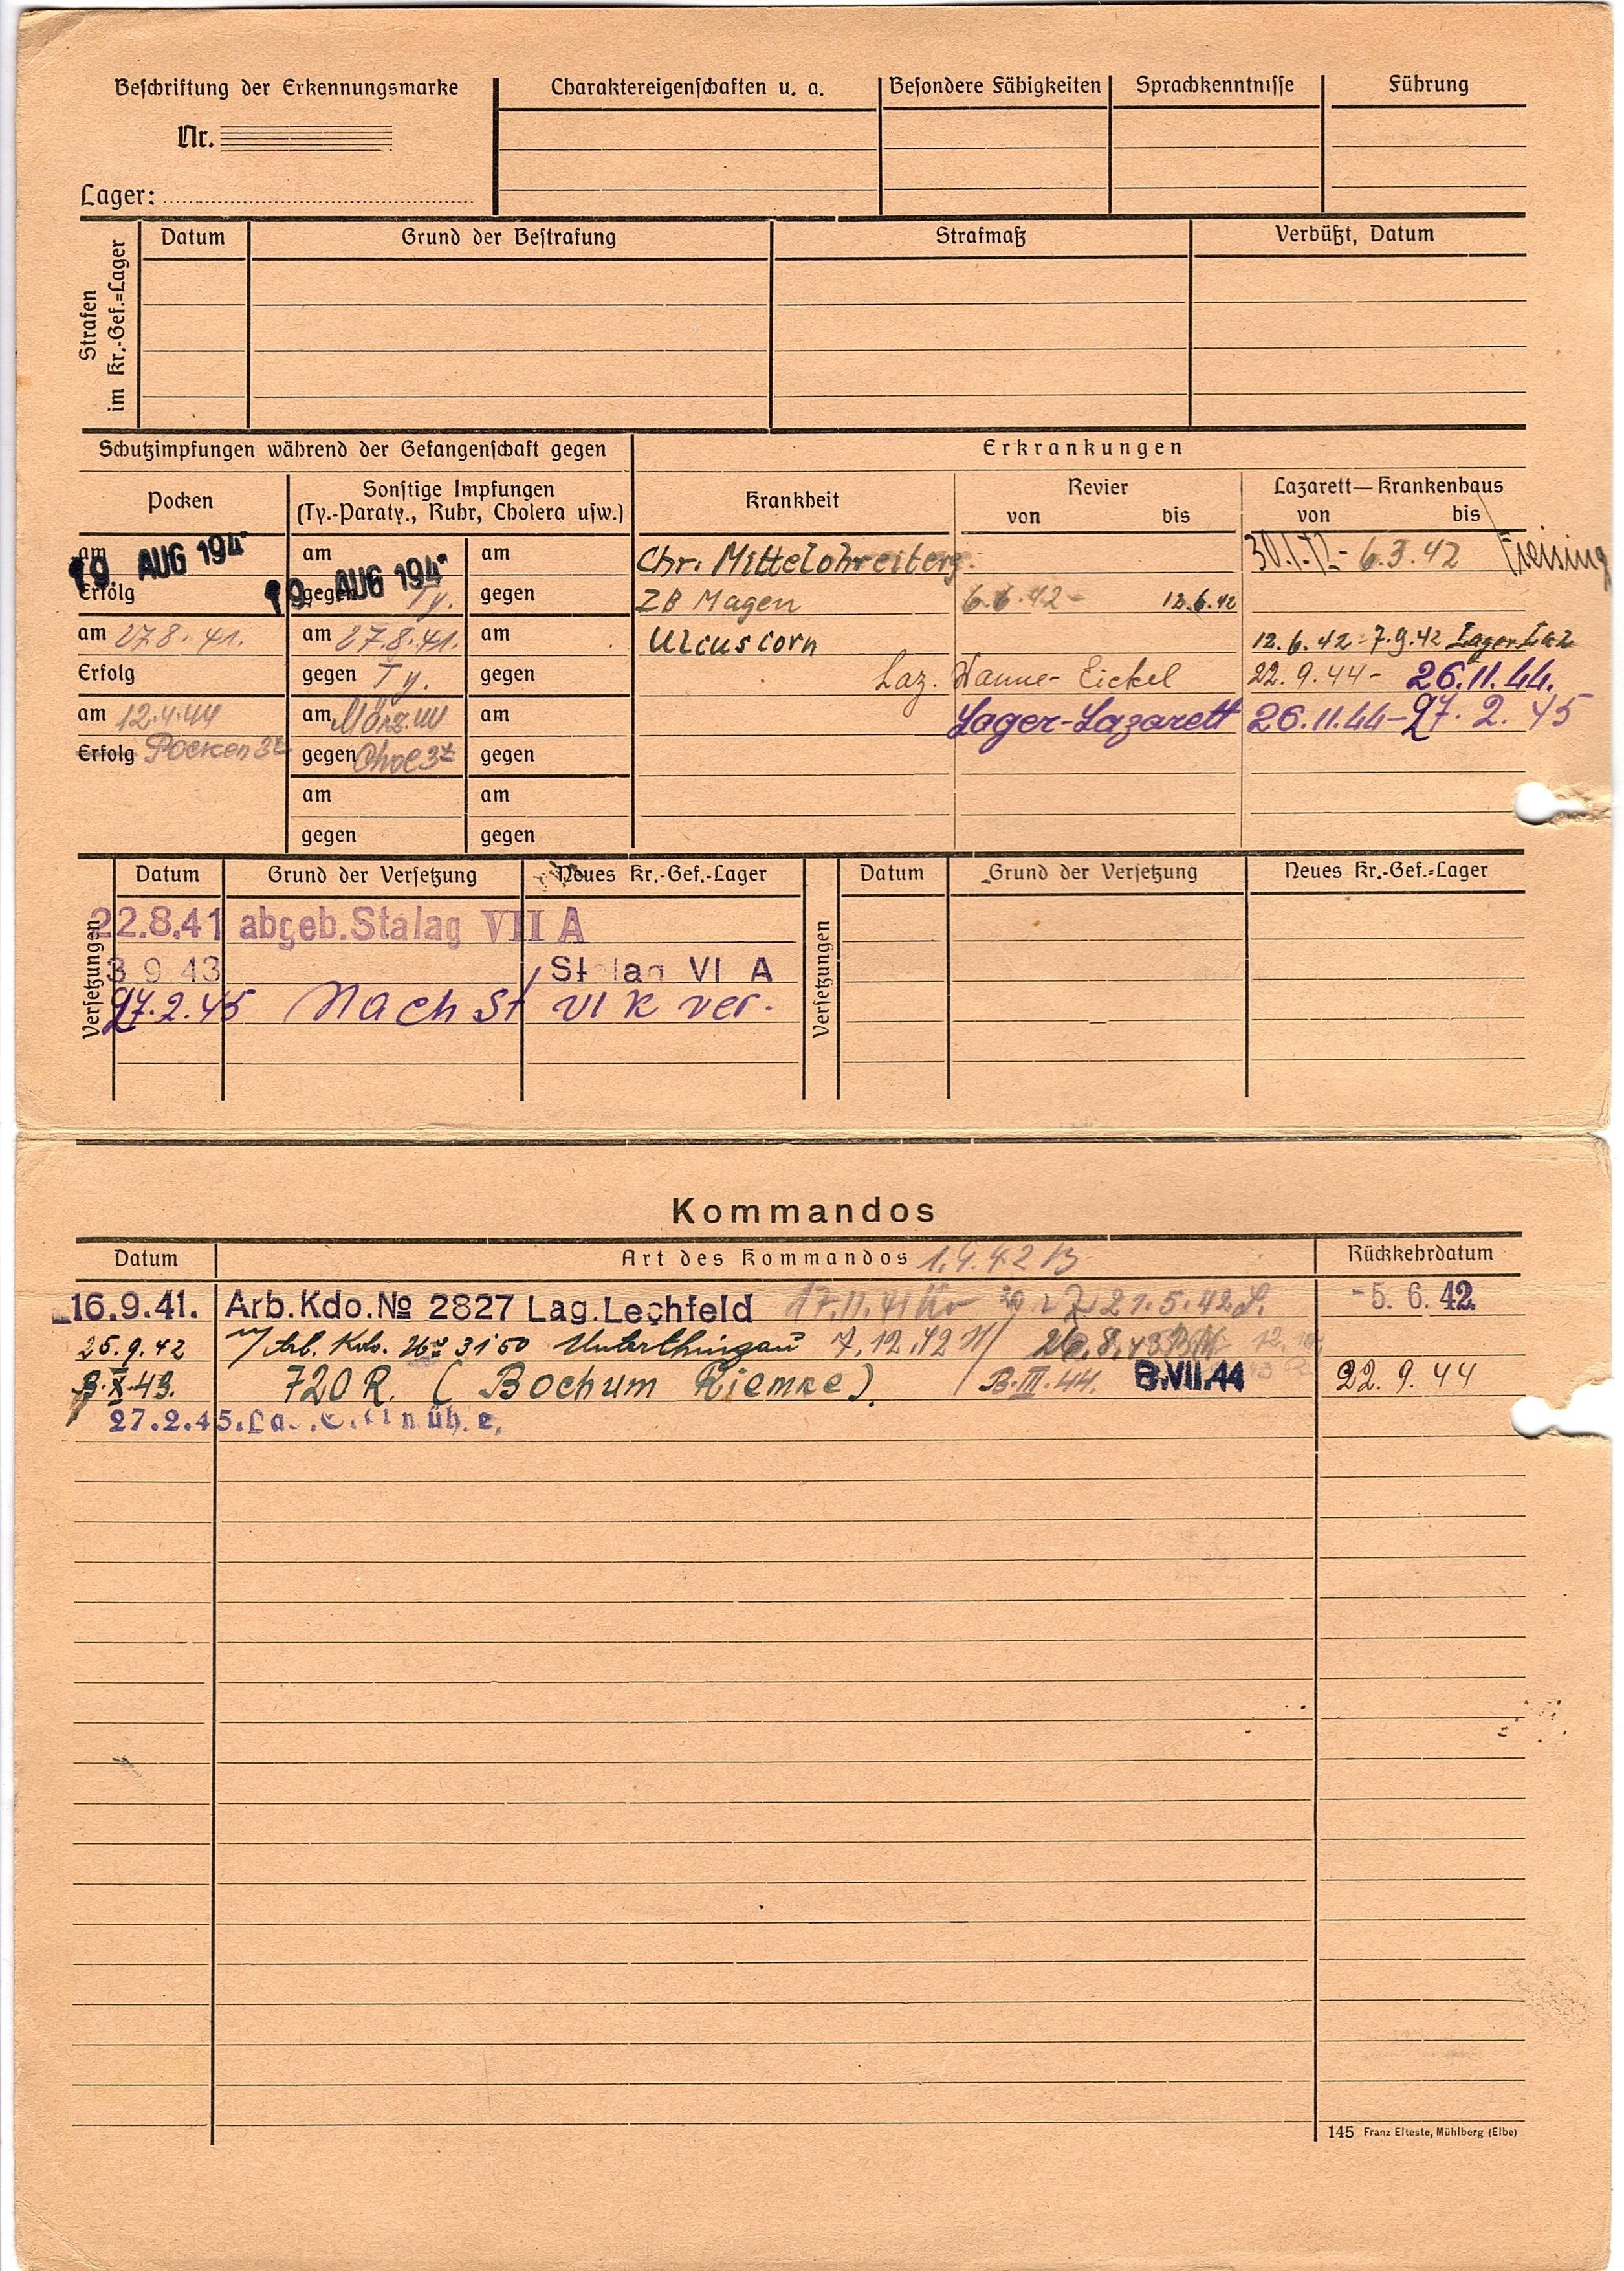 Beschriftung der Erkennungsmarke
Nr.
Lager:
Charaktereigenschaften u. a.
Besondere Fähigkeiten
Sprachkenntnisse
Führung
Strafen
im Kr.-Gef.=Lager
Datum
Grund der Bestrafung
Strafmaß
Verbüßt, Datum
Schutzimpfungen während der Gefangenschaft gegen
Erkrankungen
Pocken
Sonstige Impfungen
(Ty.-Paraty., Ruhr, Cholera usw.)
Krankheit
Revier
von bis
Lazarett—Krankenhaus
von bis
am 19. AUG 194
Erfolg
am 27.8.41.
Erfolg
am 12.4.44
Erfolg Pocken 3x
am 19. AUG 194
gegen Ty.
am 27.8.41.
gegen Ty.
am März 44
gegen Chol 3x
am
gegen
am
gegen
am
gegen
am
gegen
am
gegen
Chr. Mittelohreiterg. 30.1.42 - 6.3.42 Freising
ZB Magen 6.6.42 - 12.6.42
Ulcus corn 12.6.42 - 7.9.42 Lager Laz
Laz. Wanne-Eickel 22.9.44 - 26.11.44.
Lager-Lazarett 26.11.44 - 27.2.45
Versetzungen
Datum
Grund der Versetzung
Neues Kr.-Gef.-Lager
22.8.41 abgeb. Stalag VII A
3 9 43 Stalag VI A
27.2.45 Nach St VI K ver.
Versetzungen
Datum
Grund der Versetzung
Neues Kr.-Gef.=Lager
Kommandos
Datum
Art des Kommandos 1.9.42 B
Rückkehrdatum
16.9.41. Arb.Kdo.No 2827 Lag.Lechfeld 17.11.41 21.5.42 L. -5. 6. 42
25.9.42 Arb. Kdo. No 3150 Unterthingau 7.12.42 26.8.43
3.X.43. 720 R. (Bochum Riemke). B.III.44. 8.VII.44 22.9.44
27.2.45.
145 Franz Elteste, Mühlberg (Elbe)